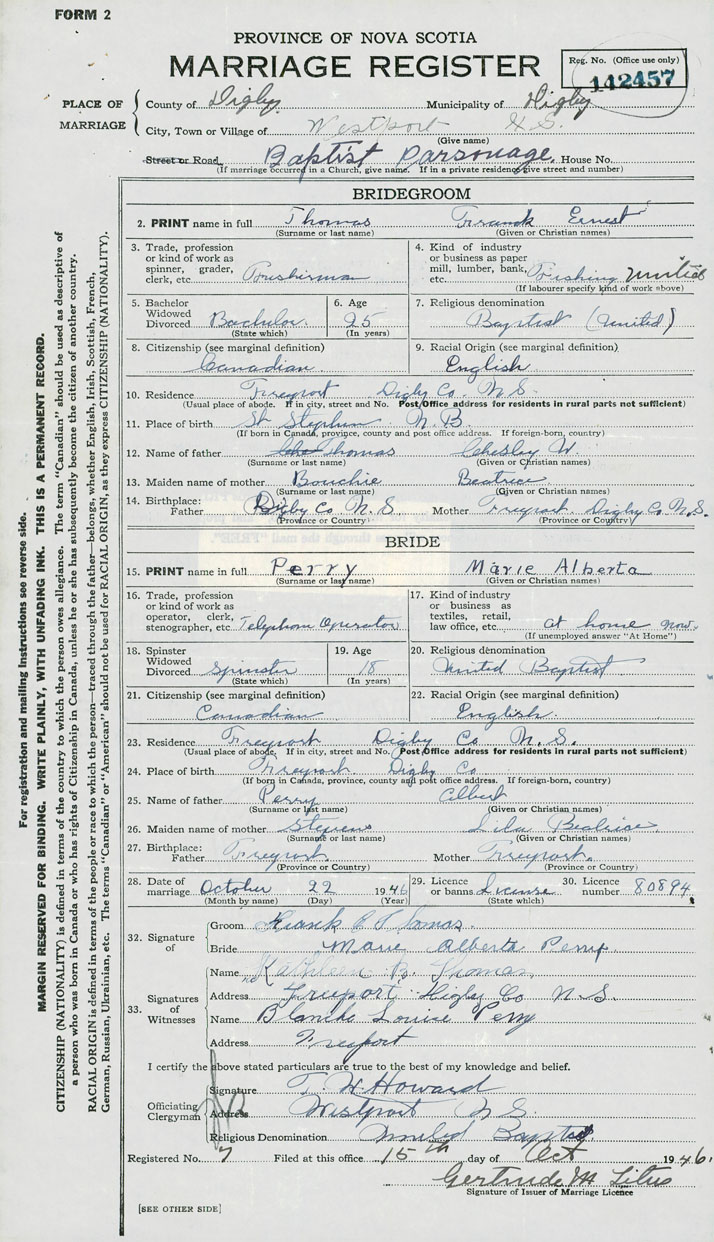 FORM 2
PROVINCE OF NOVA SCOTIA
MARRIAGE REGISTER
Reg. No. (Office use only)
142457
PLACE OF MARRIAGE
County of Digby Municipality of Digby
City, Town or Village of Westport N.S.
(Give name)
Street or Road Baptist Parsonage. House No.
(If marriage occurred in a Church, give name. If in a private residence, give street and number)
BRIDEGROOM
2. PRINT name in full Thomas Frank Ernest
(Surname or last name) (Given or Christian names)
3. Trade, profession or kind of work as spinner, grader, clerk, etc.
4. Kind of industry or business as paper mill, lumber, bank, etc. Fishing
(If labourer specify kind of work above)
5. Bachelor Widowed Divorced Bachelor (State which)
6. Age 25 (In years)
7. Religious denomination Baptist (United)
8. Citizenship (see marginal definition) Canadian
9. Racial Origin (see marginal definition) English
10. Residence Freeport Digby Co. N.S.
(Usual place of abode. If in city, street and No. Post Office address for residents in rural parts not sufficient)
11. Place of birth St Stephen N.B.
(If born in Canada, province, county and post office address. If foreign-born, country)
12. Name of father Thomas Chesley W.
(Surname or last name) (Given or Christian names)
13. Maiden name of mother Bouchie Beatrice
(Surname or last name) (Given or Christian names)
14. Birthplace: Father Digby Co N.S. Mother Freeport Digby Co N.S.
(Province or Country) (Province or Country)
BRIDE
15. PRINT name in full Perry Marie Alberta
(Surname or last name) (Given or Christian names)
16. Trade, profession or kind of work as operator, clerk, stenographer, etc. Telephone Operator
17. Kind of industry or business as textiles, retail, law office, etc. at home now.
(If unemployed answer "At Home")
18. Spinster Widowed Divorced Spinster (State which)
19. Age 18 (In years)
20. Religious denomination United Baptist
21. Citizenship (see marginal definition) Canadian
22. Racial Origin (see marginal definition) English
23. Residence Freeport Digby Co N.S.
(Usual place of abode. If in city, street and No. Post Office address for residents in rural parts not sufficient)
24. Place of birth Freeport Digby Co
(If born in Canada, province, county and post office address. If foreign-born, country)
25. Name of father Perry Albert
(Surname or last name) (Given or Christian names)
26. Maiden name of mother Stevens Lila Beatrice
(Surname or last name) (Given or Christian names)
27. Birthplace: Father Freeport Mother Freeport
(Province or Country) (Province or Country)
28. Date of marriage October 22 1946
(Month by name) (Day) (Year)
29. Licence or banns License (State which)
30. Licence number 80894
32. Signature of
Groom Frank E Thomas
Bride Marie Alberta Perry
33. Signatures of Witnesses
Name Kathleen B. Thomas
Address Freeport Digby Co N.S.
Name Blanche Louise Perry
Address Freeport
I certify the above stated particulars are true to the best of my knowledge and belief.
Officiating Clergyman
Signature T. W. Howard
Address Westport N.S.
Religious Denomination United Baptist
Registered No. 7 Filed at this office 15th day of Oct 1946
Gertrude M Titus
Signature of Issuer of Marriage Licence
[SEE OTHER SIDE]
For registration and mailing instructions see reverse side.
MARGIN RESERVED FOR BINDING. WRITE PLAINLY, WITH UNFADING INK. THIS IS A PERMANENT RECORD.
CITIZENSHIP (NATIONALITY) is defined in terms of the country to which the person owes allegiance. The term "Canadian" should be used as descriptive of
a person who was born in Canada or who has rights of Citizenship in Canada, unless he or she has subsequently become the citizen of another country.
RACIAL ORIGIN is defined in terms of the people or race to which the person—traced through the father—belongs, whether English, Irish, Scottish, French,
German, Russian, Ukrainian, etc. The terms "Canadian" or "American" should not be used for RACIAL ORIGIN, as they express CITIZENSHIP (NATIONALITY).